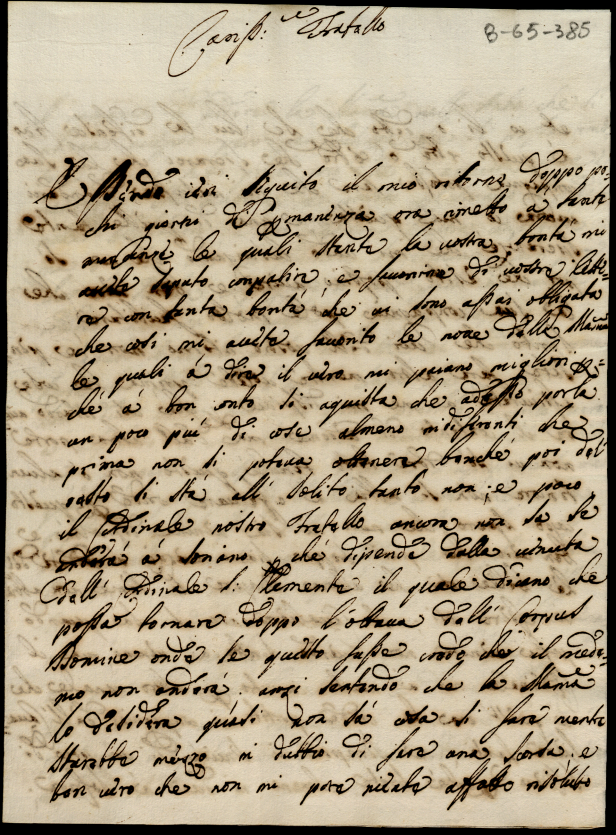 Cariss:mo Fratello
B-65-385
ieri seguito il mio ritorno doppo po-
chi giorni di Permanenza ora rimetto a tante
le quali stante la vostra bontà mi
avete saputo compatire e favorirme di vostre lette-
re con tanta bontà che vi sono assai obligata
che così mi avete favorito le nove della Mamma
le quali à dire il vero mi paiano migliori per-
chè à bon conto si aquista che adesso porta
un poco più di cose almeno indiferenti che
prima non si poteva ottenere benchè poi del
resto si stà all' solito tanto non è poco
il Cardinale nostro Fratello ancora non sa se
anderà à Soriano perchè dipende dalla venuta
dell' Cardinale S: Clemente il quale dicano che
possa tornare doppo l'ottava dell' Corpus
Domine onde se questo fusse credo che il mede-
mo non anderà anzi sentendo che la Mamma
lo desidera quasi non sà cosa si fare mentre
starebbe mezzo in dubbio di fare una scorsa e
ben vero che non mi pare niente affatto risoluto